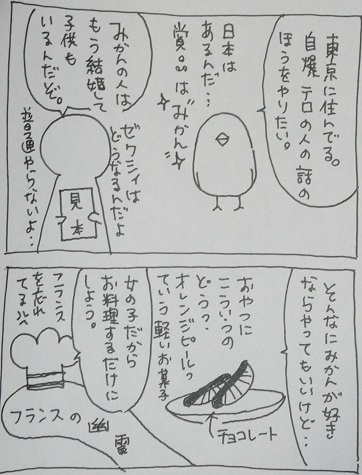 東京に住んでる。
自爆テロの人の話の
ほうをやりたい。
日本は
あるんだ…
賞品は"みかん"
みかんの人は
もう結婚して
子供も
いるんだぞ。
ゼクシィは
どうなるんだよ
普通やらないよ…
見本
そんなにみかんが好き
ならやってもいいけど…
おやつに
こういうの
どう？
オレンジピールっ
ていう軽いお菓子
チョコレート
女の子だから
お料理するだけに
しよう。
フランス
を忘れ
てるw
フランスの幽霊